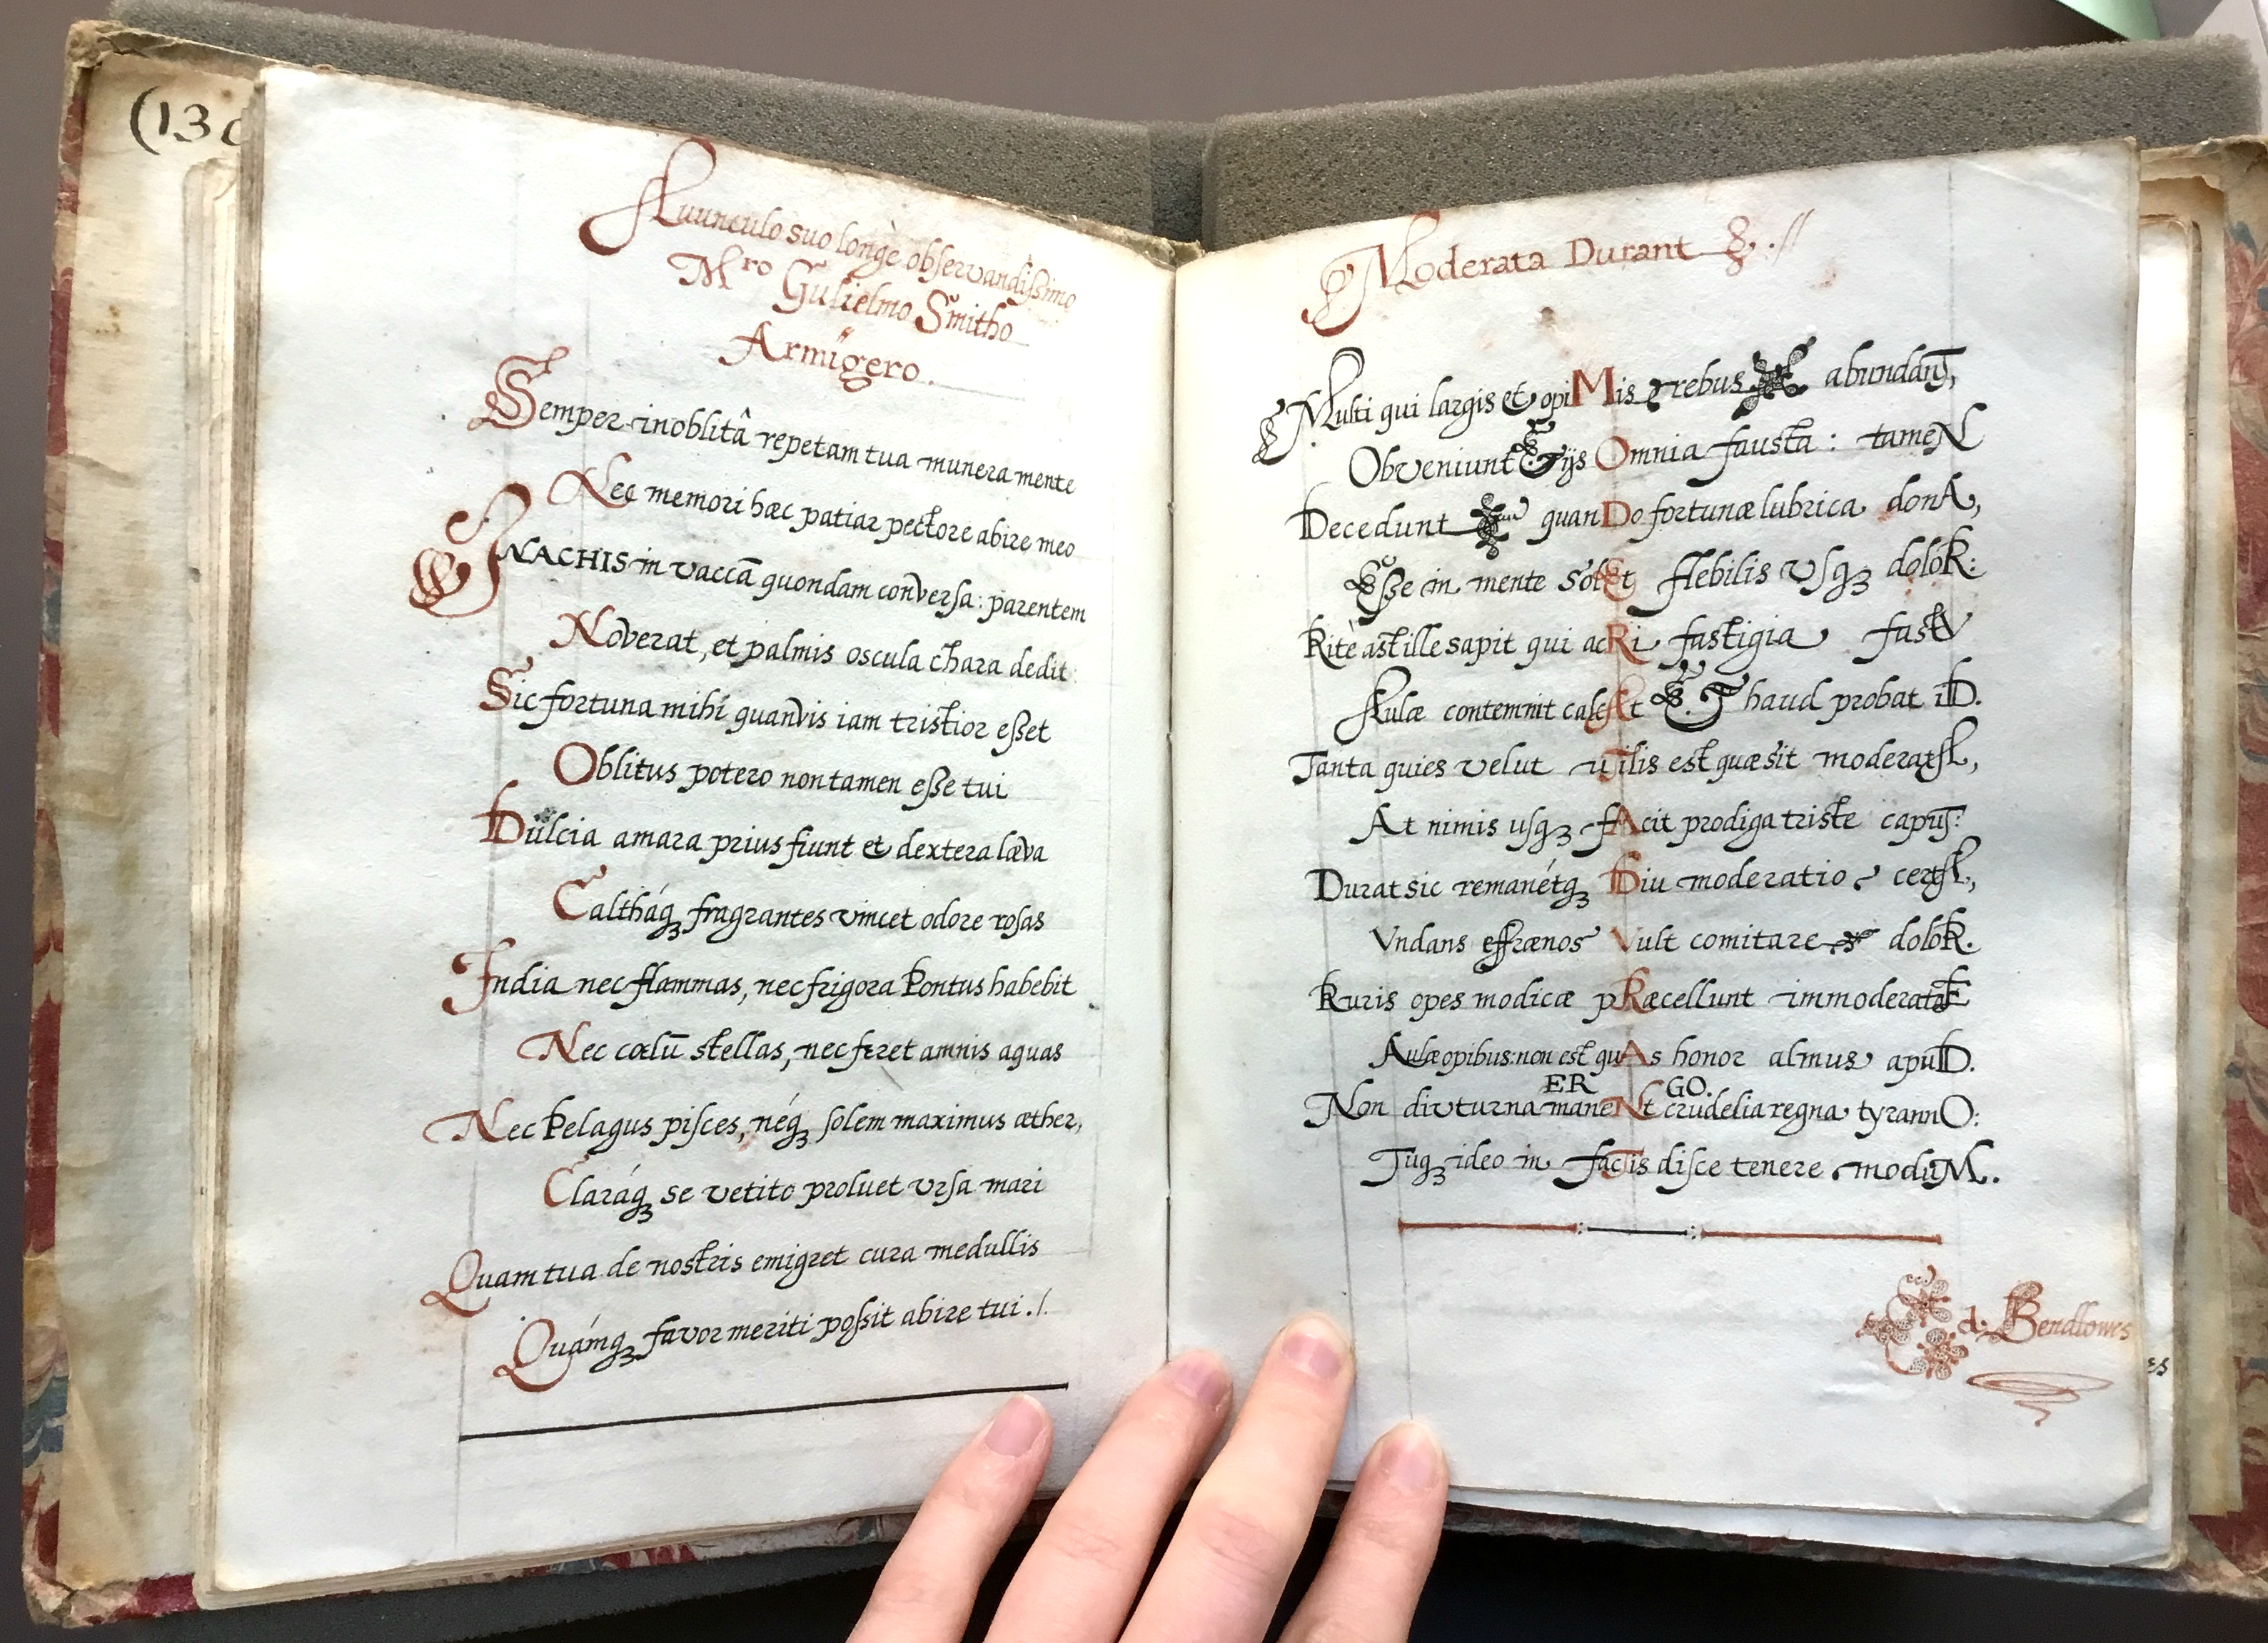 (13
Auunculo suo longè observandissimo
Mro Gulielmo Smitho
Armigero.
Semper inoblitâ repetam tua munera mente
Nec memori hæc patiar pectore abire meo
INACHIS in vaccā quondam conversa: parentem
Noverat, et palmis oscula chara dedit:
Sic fortuna mihi quanvis iam tristior esset
Oblitus potero non tamen esse tui
Dulcia amara prius fiunt et dextera læva
Caltháq3 fragrantes vincet odore rosas
India nec flammas, nec frigora Pontus habebit
Nec cœlū stellas, nec feret amnis aquas
Nec Pelagus pisces, néq3 solem maximus æther,
Claráq3 se vetito proluet Ursa mari
Quam tua de nostris emigret cura medullis
Quámq3 favor meriti possit abire tui ./.
Moderata Durant .//
Multi qui largis et opiMis rebus abundanT,
Obveniunt ijs Omnia fausta: tameN
Decedunt quanDo fortunæ lubrica donA,
Esse in mente solEt flebilis usq3 doloR:
Ritè ast ille sapit qui acRi fastigia fastV
Aulæ contemnit calcAt Et haud probat iD.
Tanta quies velut uTilis est quæsit moderatA,
At nimis usq3 fAcit prodiga triste capuT:
Durat sic remanétq3 Diu moderatio certA,
Vndans effrænos Vult comitare doloR.
Ruris opes modicæ pRæcellunt immoderatE
Aulæ opibus: non est quAs honor almus apuD.
ER GO.
Non diuturna maneNt crudelia regna tyrannO:
Tuq3 ideo in facTis disce tenere moduM.
d: Bendlowes
es